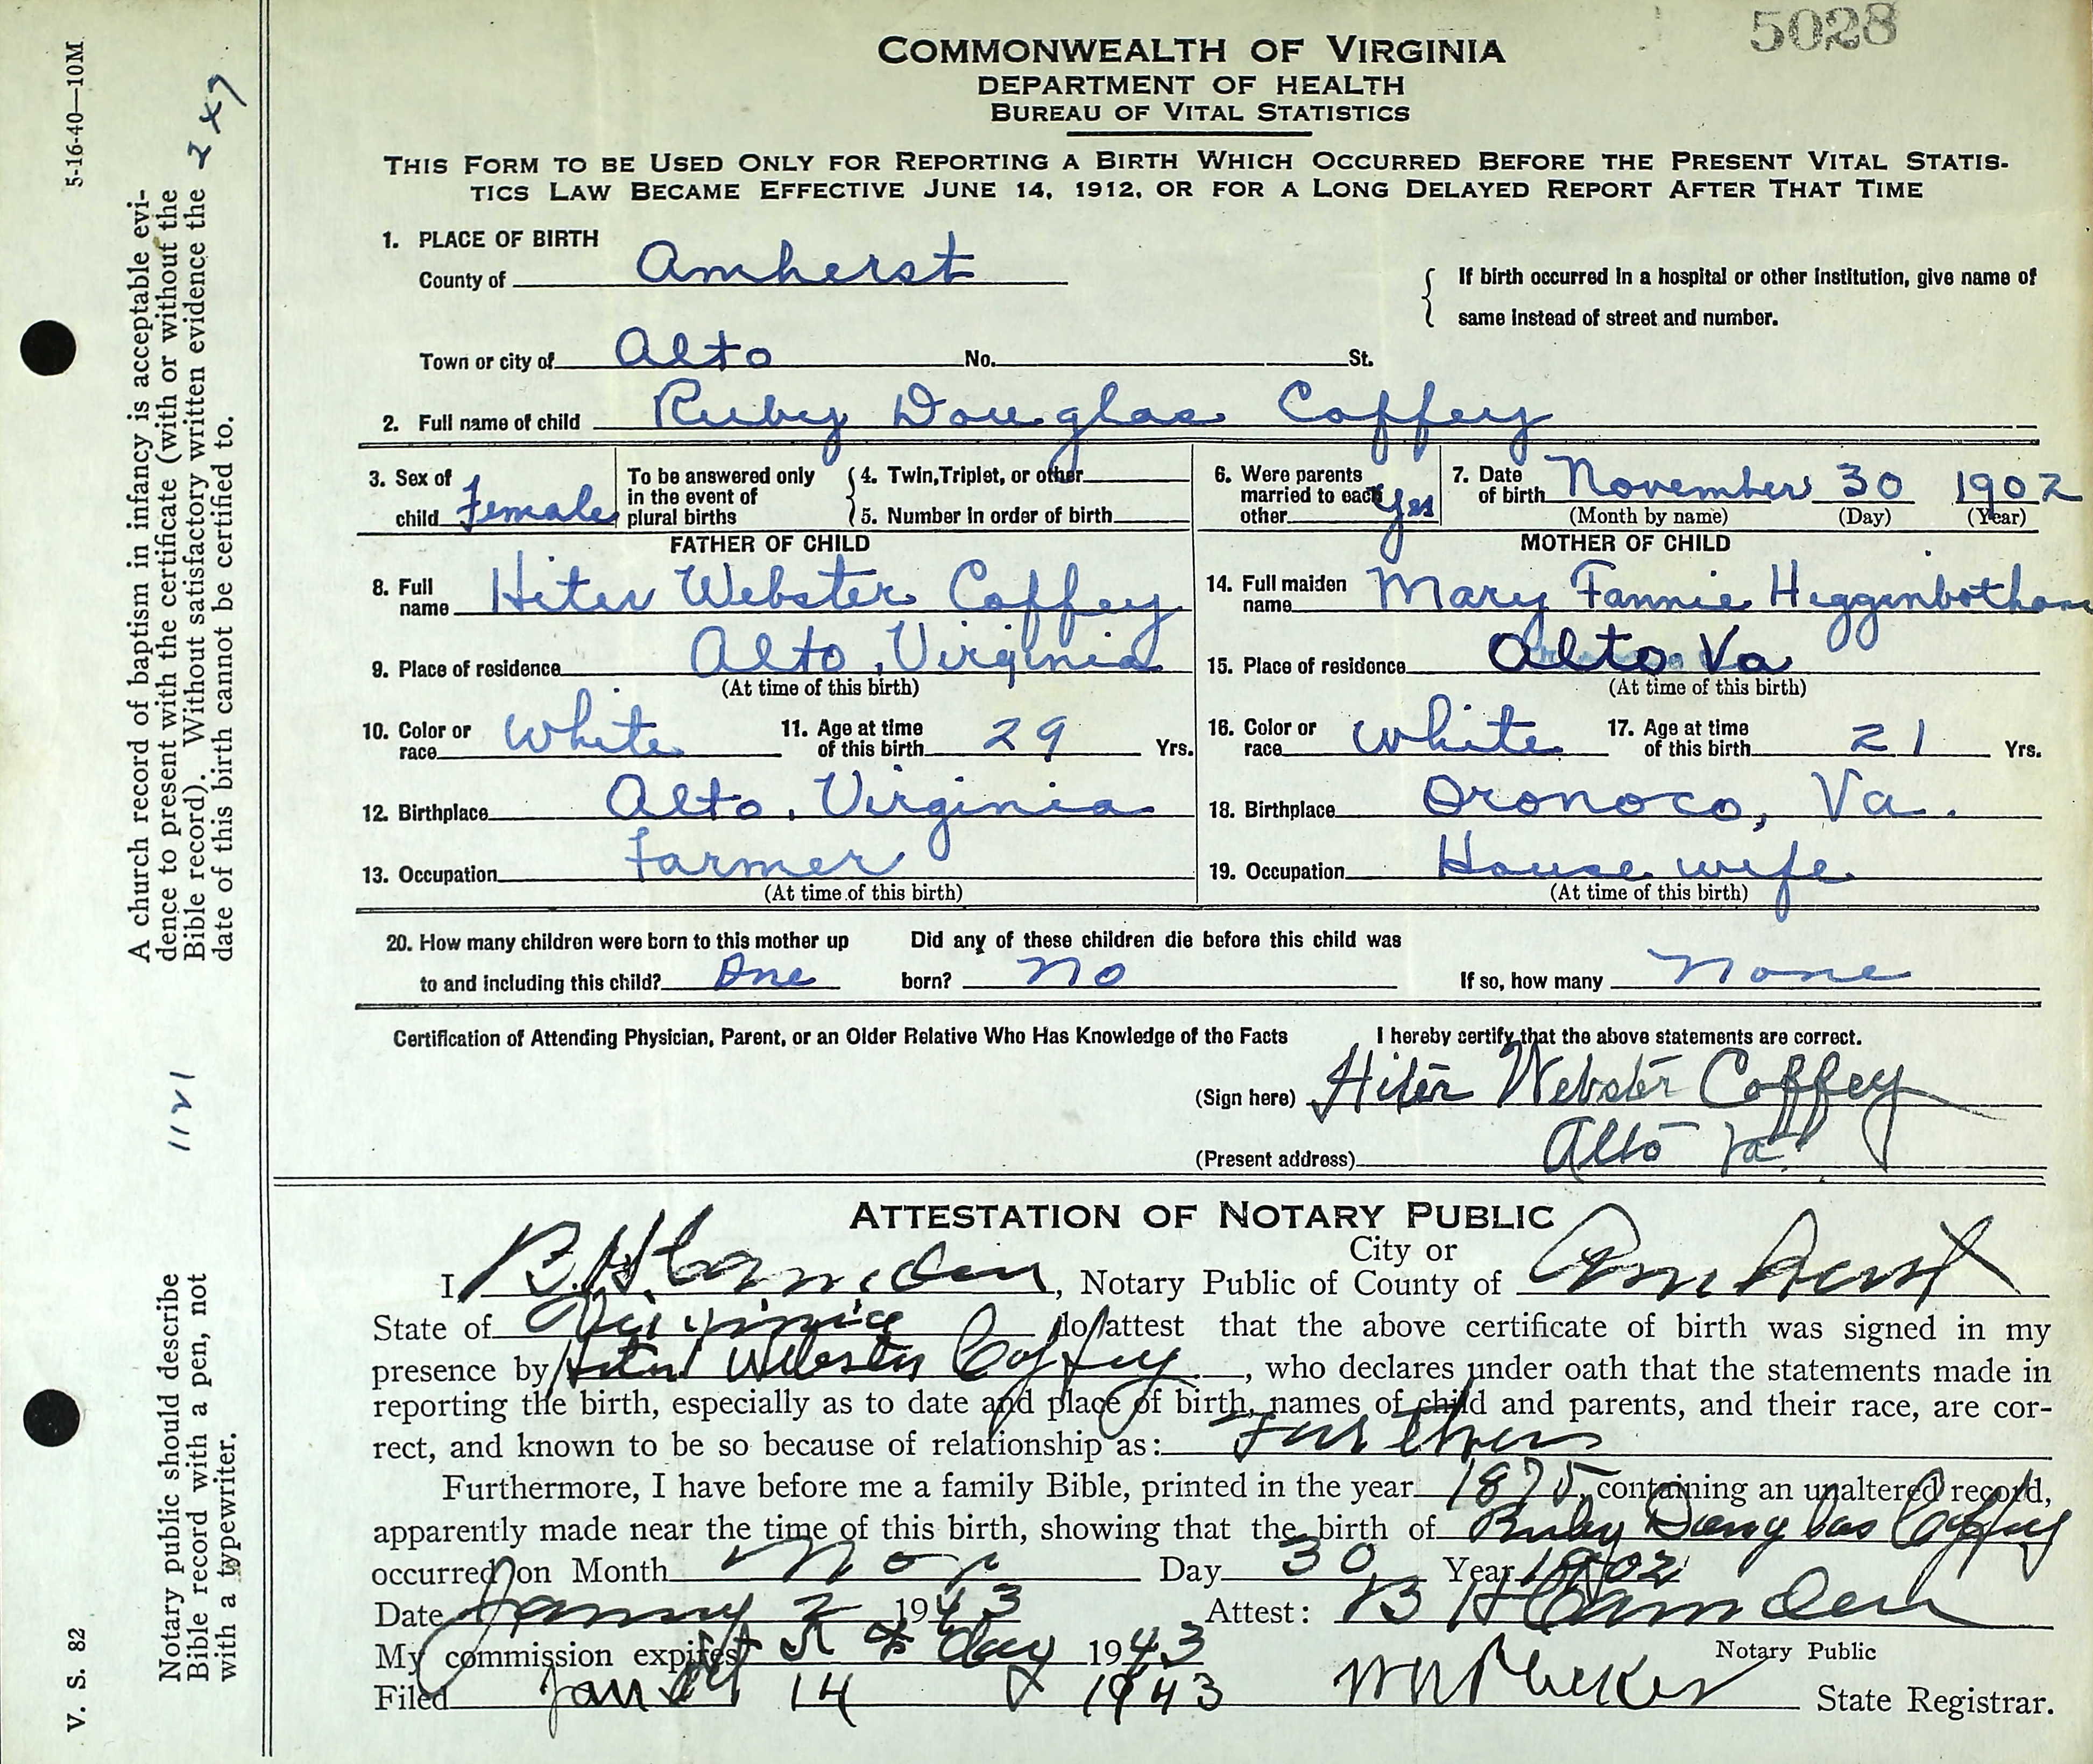 5028
COMMONWEALTH OF VIRGINIA
DEPARTMENT OF HEALTH
BUREAU OF VITAL STATISTICS
THIS FORM TO BE USED ONLY FOR REPORTING A BIRTH WHICH OCCURRED BEFORE THE PRESENT VITAL STATIS-
TICS LAW BECAME EFFECTIVE JUNE 14, 1912, OR FOR A LONG DELAYED REPORT AFTER THAT TIME
1. PLACE OF BIRTH
County of Amherst
{ If birth occurred in a hospital or other institution, give name of
same instead of street and number.
Town or city of Alto No. St.
2. Full name of child Ruby Douglas Coffey
3. Sex of child Female
To be answered only in the event of plural births { 4. Twin, Triplet, or other
5. Number in order of birth
6. Were parents married to each other Yes
7. Date of birth November 30 1902
(Month by name) (Day) (Year)
FATHER OF CHILD
8. Full name Hiter Webster Coffey
9. Place of residence Alto, Virginia
(At time of this birth)
10. Color or race White 11. Age at time of this birth 29 Yrs.
12. Birthplace Alto, Virginia
13. Occupation Farmer
(At time of this birth)
MOTHER OF CHILD
14. Full maiden name Mary Fannie Higginbotham
15. Place of residence Alto Va
(At time of this birth)
16. Color or race White 17. Age at time of this birth 21 Yrs.
18. Birthplace Oronoco, Va.
19. Occupation House wife
(At time of this birth)
20. How many children were born to this mother up Did any of these children die before this child was
to and including this child? One born? no If so, how many none
Certification of Attending Physician, Parent, or an Older Relative Who Has Knowledge of the Facts I hereby certify that the above statements are correct.
(Sign here) Hiter Webster Coffey
(Present address) Alto Va
ATTESTATION OF NOTARY PUBLIC
City or
I B. H. Camden, Notary Public of County of Amherst
State of Virginia do attest that the above certificate of birth was signed in my
presence by Hiter Webster Coffey, who declares under oath that the statements made in
reporting the birth, especially as to date and place of birth, names of child and parents, and their race, are cor-
rect, and known to be so because of relationship as: Farther
Furthermore, I have before me a family Bible, printed in the year 1875, containing an unaltered record,
apparently made near the time of this birth, showing that the birth of Ruby Douglas Coffey
occurred on Month Nov Day 30 Year 1902
Date January 2 1943 Attest: B H Camden
My commission expires day 1943 Notary Public
Filed Jan 14 1943 State Registrar.
5-16-40—10M
2 x 7
A church record of baptism in infancy is acceptable evi-
dence to present with the certificate (with or without the
Bible record). Without satisfactory written evidence the
date of this birth cannot be certified to.
1121
Notary public should describe
Bible record with a pen, not
with a typewriter.
V. S. 82